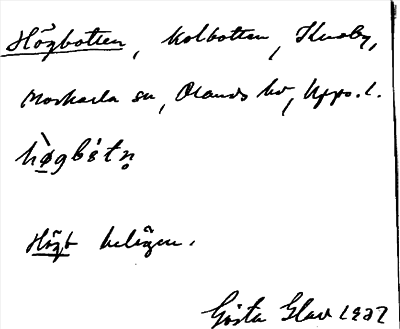 Högbotten, Kolbotten, Skuby,
Morkarla sn, Olands hd, Upps. l.
hø̀gbótn̥
Högt belägen.
Gösta Glav 1927